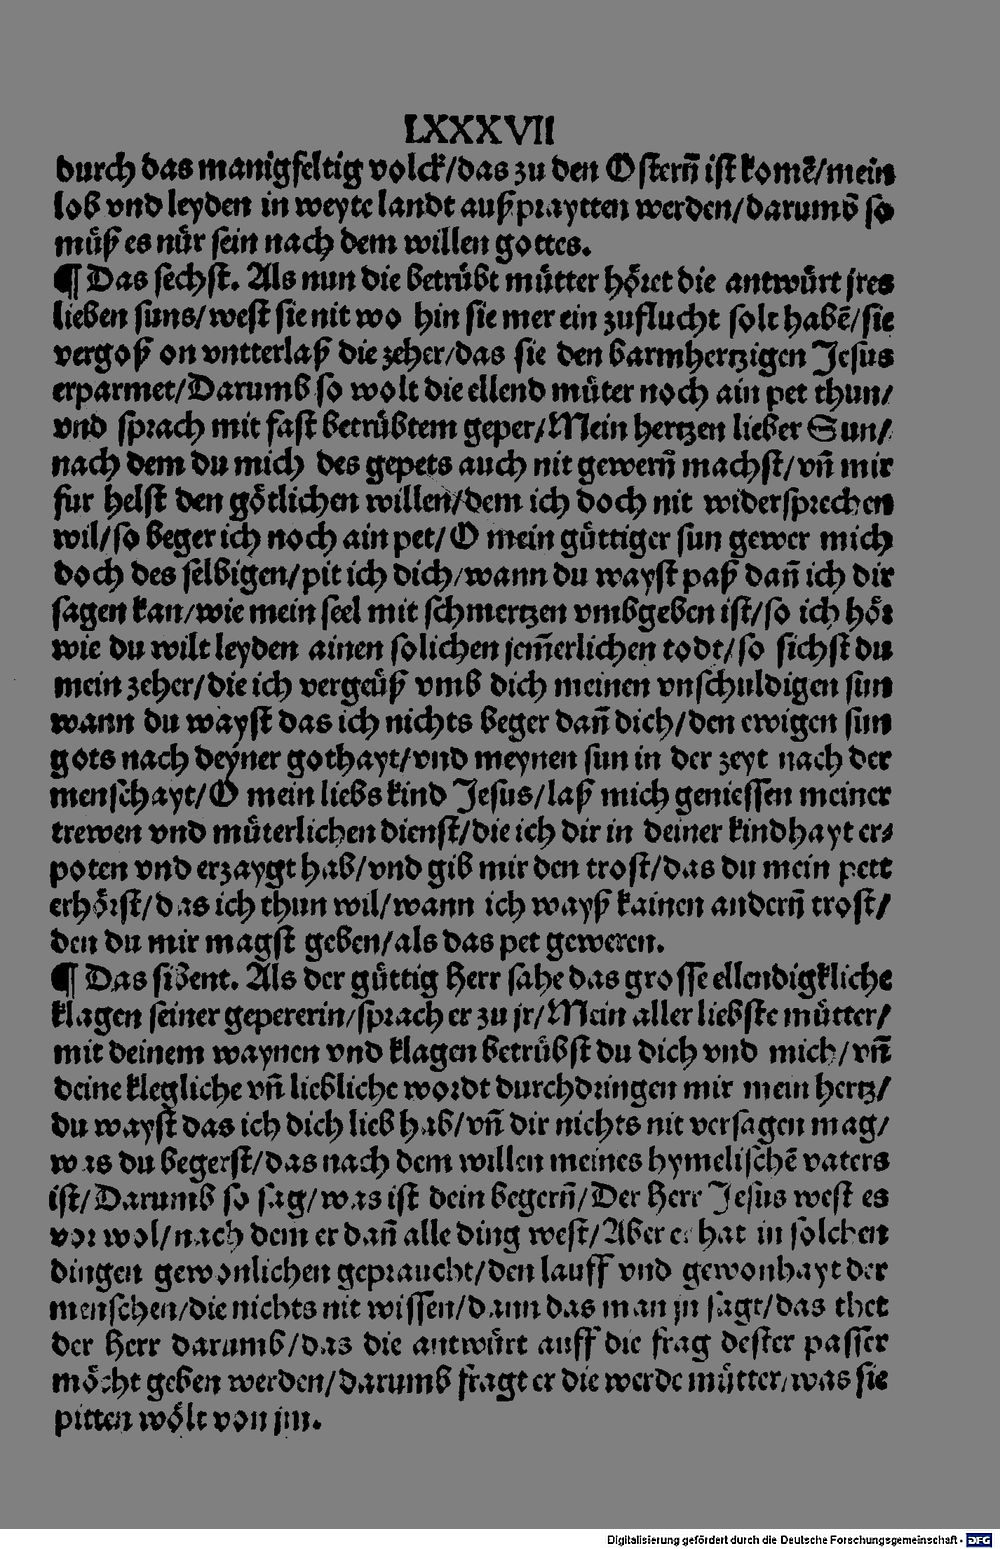 LXXXVII
durch das manigfeltig volck/das zu den Osterñ ist komẽ/mein
lob vnd leyden in weyte landt außpraytten werden/darumb so
müß es nür sein nach dem willen gottes.
¶ Das sechst. Als nun die betrübt mütter höret die antwürt jres
lieben suns/west sie nit wo hin sie mer ein zuflucht solt habẽ/sie
vergoß on vntterlaß die zeher/das sie den barmhertzigen Jesus
erparmet/Darumb so wolt die ellend müter noch ain pet thun/
vnd sprach mit fast betrübtem geper/Mein hertzen lieber Sun/
nach dem du mich des gepets auch nit gewerñ machst/vñ mir
fur helst den götlichen willen/dem ich doch nit widersprechen
wil/so beger ich noch ain pet/O mein güttiger sun gewer mich
doch des selbigen/pit ich dich/wann du wayst paß dañ ich dir
sagen kan/wie mein seel mit schmertzen vmbgeben ist/so ich hör
wie du wilt leyden ainen solichen jem̃erlichen todt/so sichst du
mein zeher/die ich vergeüß vmb dich meinen vnschuldigen sun
wann du wayst das ich nichts beger dañ dich/den ewigen sun
gots nach deyner gothayt/vnd meynen sun in der zeyt nach der
menschayt/O mein liebs kind Jesus/laß mich geniessen meiner
trewen vnd müterlichen dienst/die ich dir in deiner kindhayt er⸗
poten vnd erzaygt hab/vnd gib mir den trost/das du mein pett
erhörst/das ich thun wil/wann ich wayß kainen anderñ trost/
den du mir magst geben/als das pet geweren.
¶ Das sibent. Als der güttig Herr sahe das grosse ellendigkliche
klagen seiner gepererin/sprach er zu jr/Mein aller liebste mütter/
mit deinem waynen vnd klagen betrübst du dich vnd mich/vñ
deine klegliche vñ liebliche wordt durchdringen mir mein hertz/
du wayst das ich dich lieb hab/vñ dir nichts nit versagen mag/
was du begerst/das nach dem willen meines hymelischẽ vaters
ist/Darumb so sag/was ist dein begerñ/Der Herr Jesus west es
vor wol/nach dem er dañ alle ding west/Aber er hat in solchen
dingen gewonlichen gepraucht/den lauff vnd gewonhayt der
menschen/die nichts nit wissen/dann das man jn sagt/das thet
der Herr darumb/das die antwürt auff die frag dester passer
möcht geben werden/darumb fragt er die werde mütter/was sie
pitten wölt von jm.
Digitalisierung gefördert durch die Deutsche Forschungsgemeinschaft - DFG